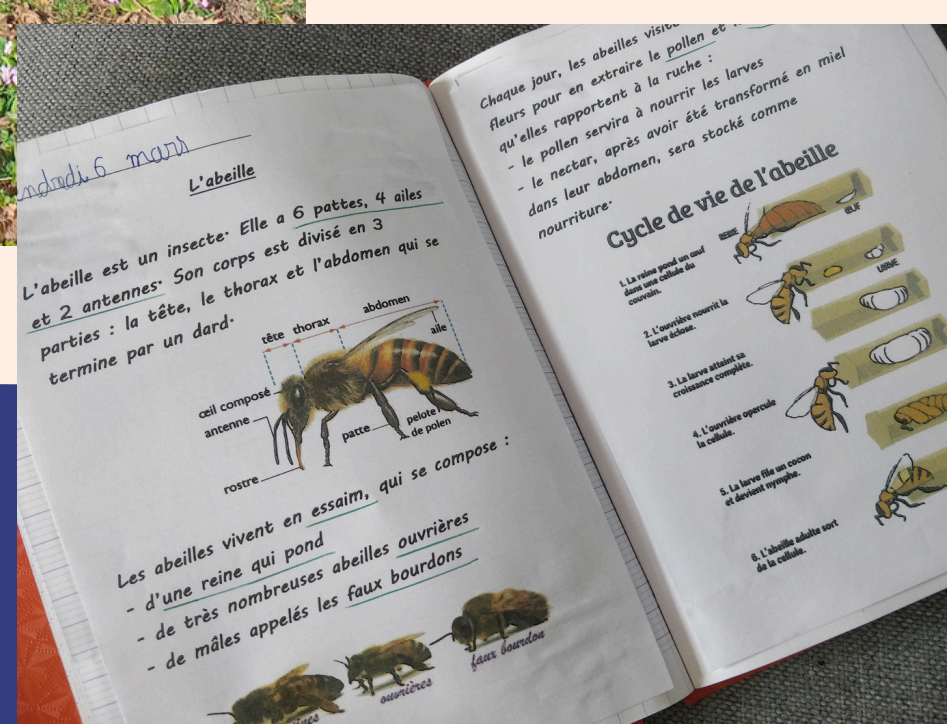 vendredi 6 mars
L'abeille
L'abeille est un insecte. Elle a 6 pattes, 4 ailes
et 2 antennes. Son corps est divisé en 3
parties : la tête, le thorax et l'abdomen qui se
termine par un dard.
tête thorax abdomen
aile
œil composé
antenne
patte
pelote
de polen
rostre
Les abeilles vivent en essaim, qui se compose :
- d'une reine qui pond
- de très nombreuses abeilles ouvrières
- de mâles appelés les faux bourdons
ouvrières
faux bourdon
Chaque jour, les abeilles
fleurs pour en extraire le pollen et
qu'elles rapportent à la ruche :
- le pollen servira à nourrir les larves
- le nectar, après avoir été transformé en miel
dans leur abdomen, sera stocké comme
nourriture.
Cycle de vie de l'abeille
REINE
ŒUF
1. La reine pond un œuf
dans une cellule du
couvain.
LARVE
2. L'ouvrière nourrit la
larve éclose.
3. La larve atteint sa
croissance complète.
4. L'ouvrière opercule
la cellule.
5. La larve file un cocon
et devient nymphe.
6. L'abeille adulte sort
de la cellule.